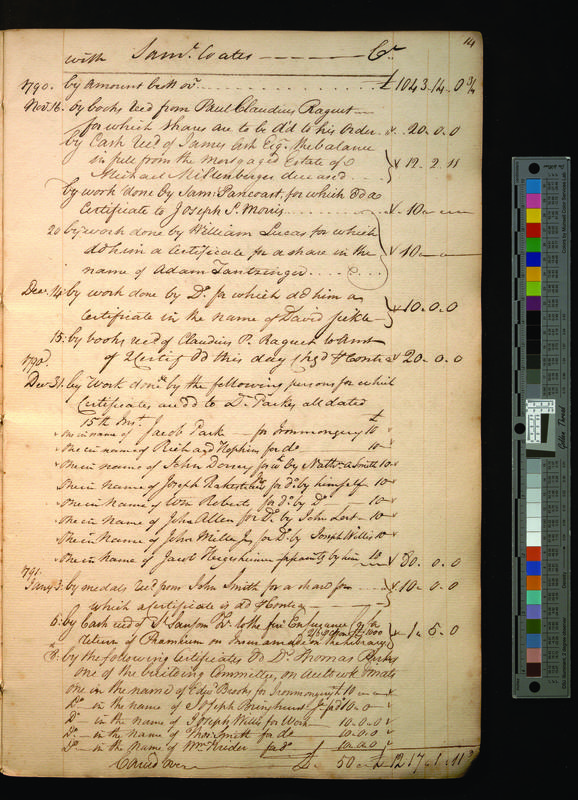 14
with Sam.l Coates Cr
1790. by amount bro.t ov.r £1043.14.0 3/4
Nov. 16. by books rec'd from Paul Claudius Raguet
for which shares are to be dd to his Order. 20.0.0
by Cash rec'd of James Ash Esq. the balance
in full from the Mortgaged Estate of
Michael Millenberger deceased 12.2.11
by work done by Sam: Pancoast, for which dd a
Certificate to Joseph S. Morris 10
20 by work done by William Lucas for which
dd him a Certificate for a share in the 10
name of Adam Tantzinger
Dec. 14: by work done by D.o for which dd him a
Certificate in the name of David Jickle 10.0.0
15: by books rec'd of Claudius P. Raguet to Am.t
of 2 Certif. dd this day 20.0.0
1790
Dec 31. by Work done by the following persons for which
Certificates are dd to D.r Parkes, all dated
15th Inst. £
one in name of Jacob Park for Ironmongery 10
One in name of Richard Hopkins for do 10
One in name of John Dorsey for do by Nath.l A Smith 10
One in name of Joseph Rakestraw for do by himself 10
One in name of Wm Roberts for do by D.o 10
One in name of John Allen for D.o by John Lort 10
One in name of John Miller Jr for D.o by Joseph Wills 10
One in name of Jacob Hergesheimer by him 10 80.0.0
1791.
Jan.y 3: by medals rec'd from John Smith for a share for
which a Certificate is dd 10.0.0
5: by Cash rec'd of J. Sansom
return of on Insurance made on the library 1.5.0
8: by the following Certificates dd D.r Thomas Parkes
one of the building Committee, on acct. work & mat.ls
one in the name of Edw.d Brooks for Ironmongery 10
D.o in the name of Joseph Bringhurst Jr p.r do 10.0
D.o in the name of Joseph Wills for Work 10.0.0
D.o in the name of Tho.s Smith for do 10.0.0
D.o in the Name of Wm Krider p.r do 10.0.0
Carried over £ 50 1217.1.11